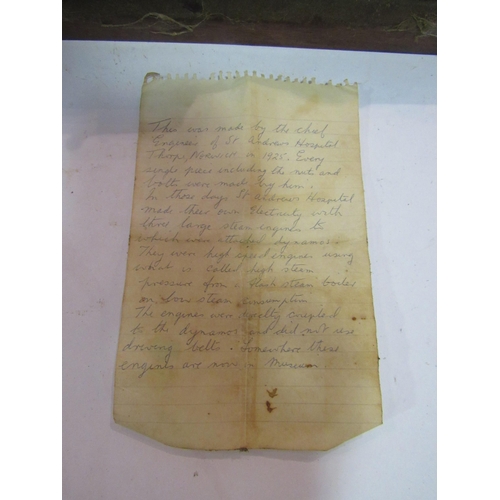 This was made by the chef
Engineer of St Andrews Hospital
Thorpe, Norwich in 1925. Every
single piece including the nuts and
bolts were made by him.
In those days St Andrews Hospital
made their own Electricity with
three large steam engines to
which were attached dynamos.
They were high speed engines using
what is called high steam
pressure from a flash steam boiler
on low steam consumption.
The engines were directly coupled
to the dynamos and did not use
driving belts. Somewhere these
engines are now in Museum